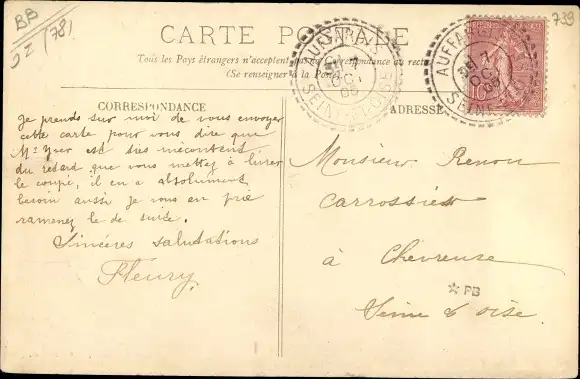 BB
(78)
739
CARTE POSTALE
Tous les Pays étrangers n'acceptent pas la Correspondance au recto
(Se renseigner à la Poste)
AUFFARGIS
OCT
SEINE-ET-OISE
AUFFARGIS
OCT
SEINE
10
CORRESPONDANCE
Je prends sur moi de vous envoyer
cette carte pour vous dire que
Mr Yver est très mécontent
du retard que vous mettez à livrer
le coupé, il en a absolument
besoin aussi je vous en prie
ramenez le de suite.
Sincères salutations
Fleury
ADRESSE
Monsieur Renou
Carrossier
à Chevreuse
PB
Seine & oise